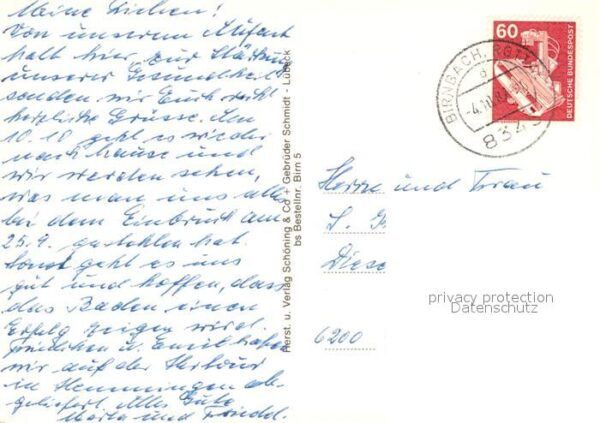 Meine Lieben!
Von unserem Aufent
halt hier, zur Stärkung
unserer Gesundheit
senden wir Euch recht
herzliche Grüsse. Am
10.10 geht es wieder
nach hause und
wir werden sehen,
was man uns alles
bei dem Einbruch am
25.9. gestohlen hat.
Sonst geht es uns
gut und hoffen, dass
das Baden einen
Erfolg zeigen wird.
Friedchen u. Emil haben
wir auf der Herfour
in Hemmingen ab-
geliefert. Alles Gute
Maria und Friedel.
Herst. u. Verlag Schöning & Co + Gebrüder Schmidt - Lübeck
bs Bestellnr. Birn 5
60
DEUTSCHE BUNDESPOST
BIRNBACH, ROTT
-4.10.8
834
Herrn und Frau
L. F
Diese
6200
privacy protection
Datenschutz